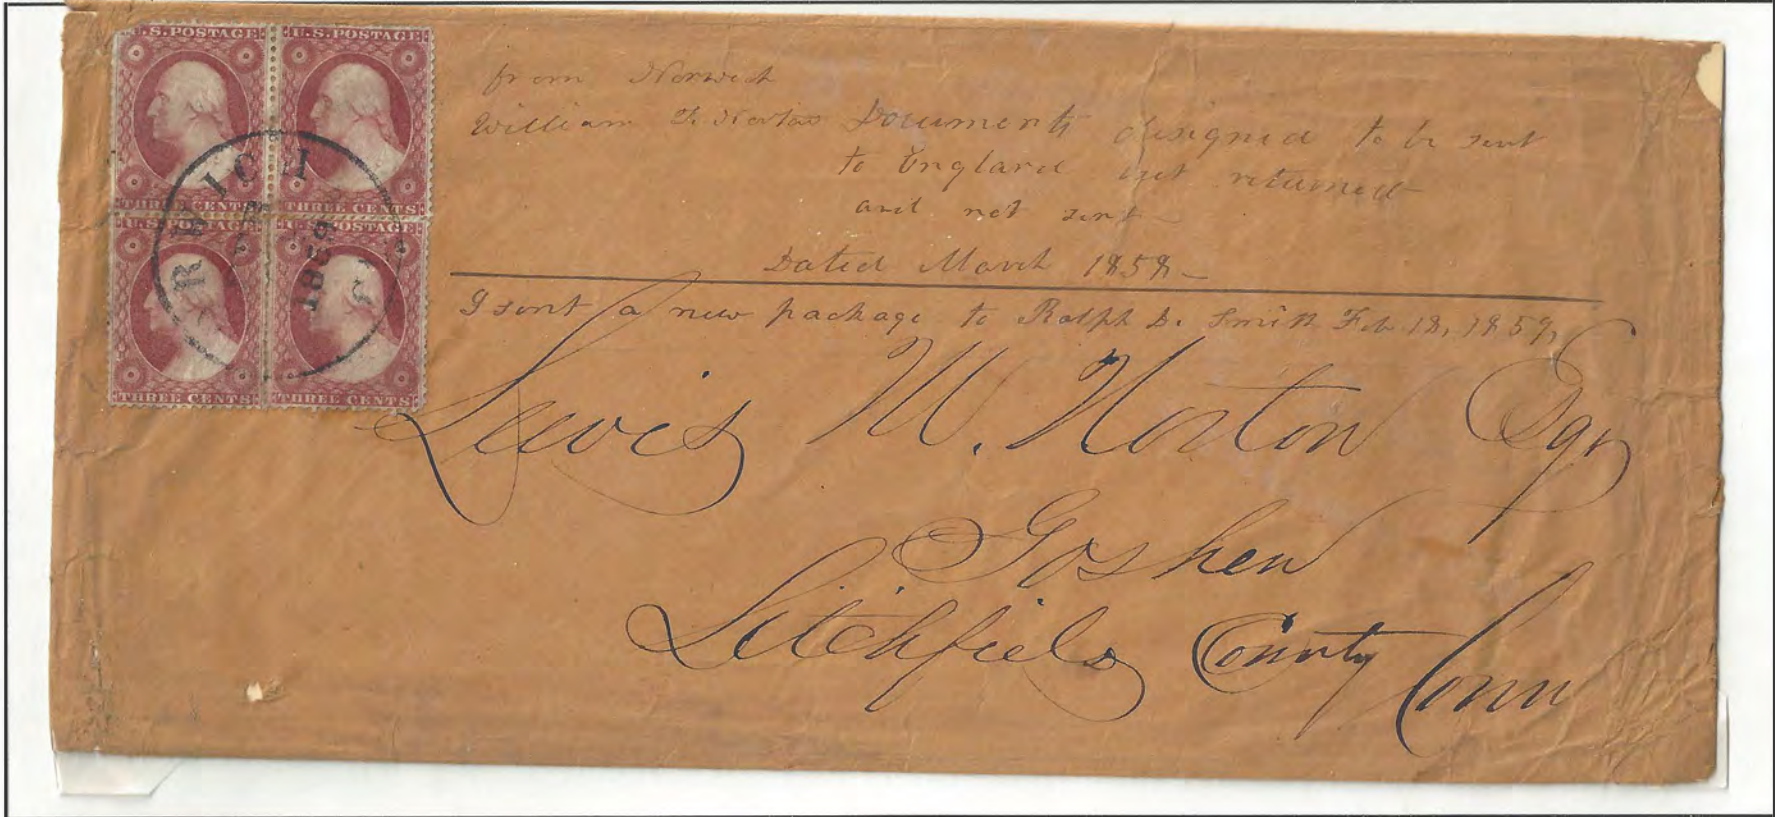 U.S. POSTAGE U.S. POSTAGE
THREE CENTS THREE CENTS
U.S. POSTAGE U.S. POSTAGE
THREE CENTS THREE CENTS
RWICH
1859
from Norwich
William Documents designed to be sent
to England but returned
and not sent
Dated March 1858
I sent a new package to Ralph D. Smith Feb 18, 1859,
Lewis M. Norton Esqr
Goshen
Litchfield County Conn